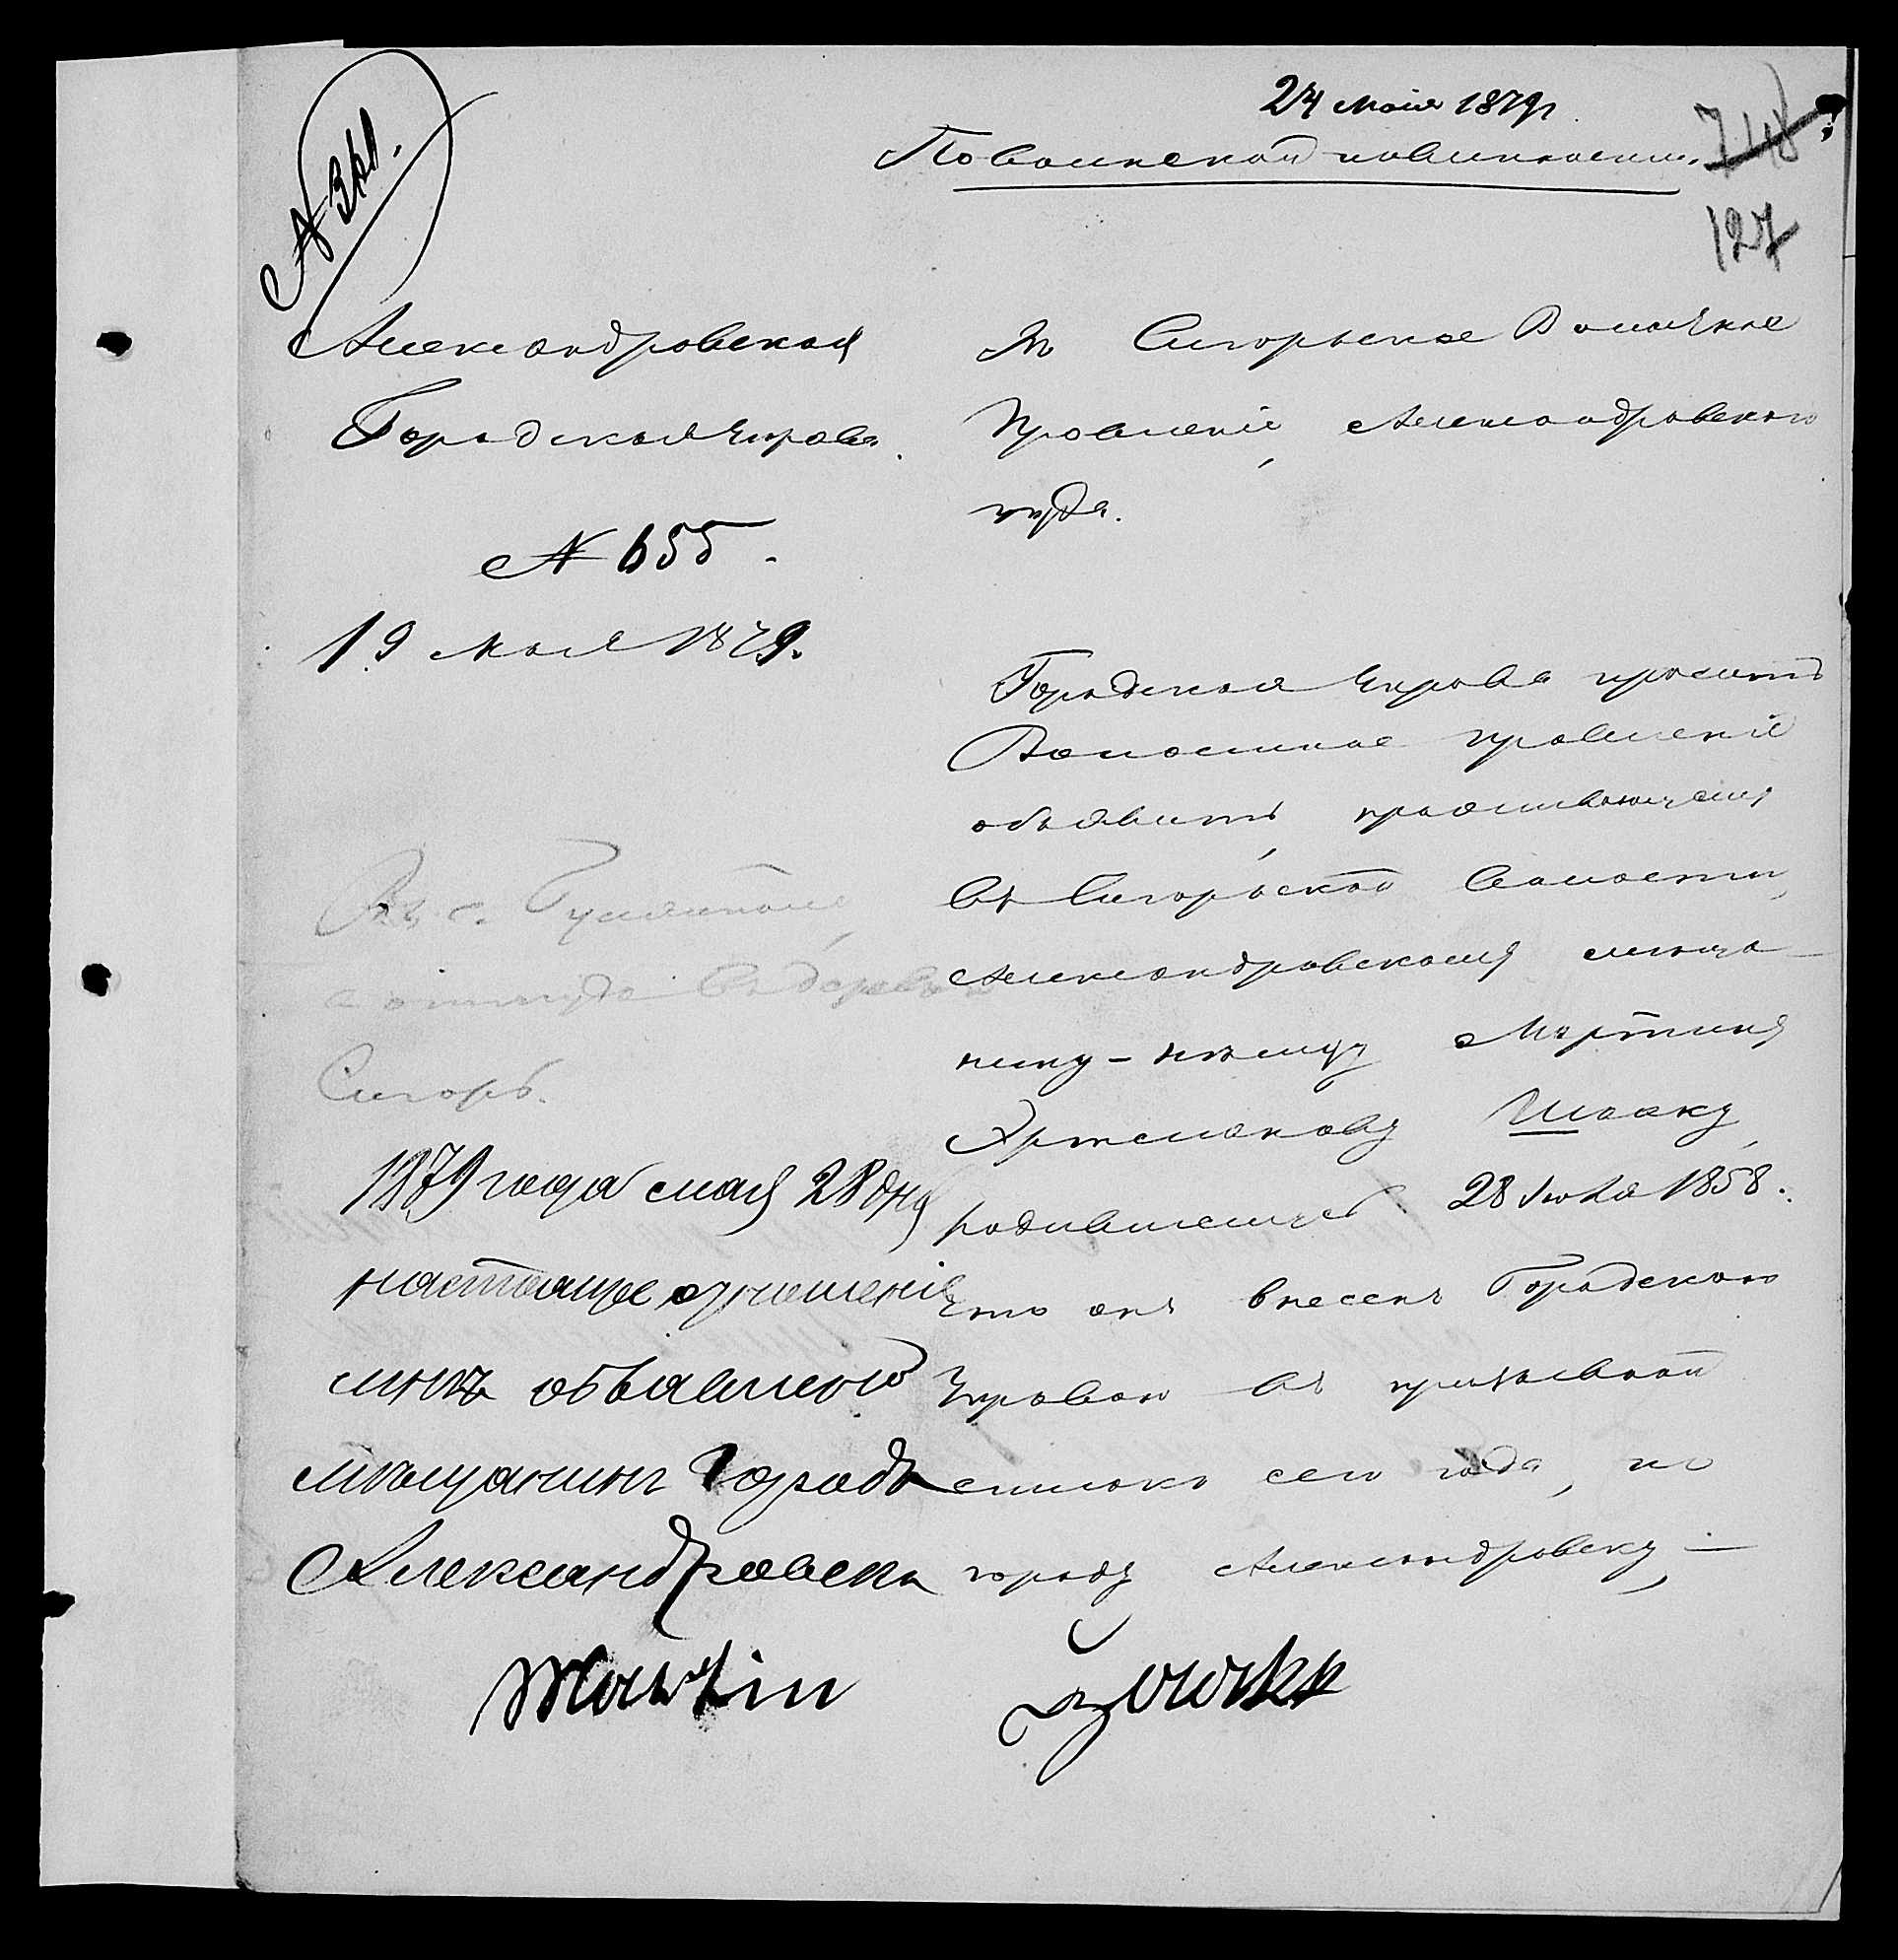 24 мая 1879 г.
По воинской повинности.
748
127
№ 361.
Александровская
Городская Управа.
№ 655.
19 мая 1879.
Въ Сигорьское Волостное
Правленіе, Александровского
уезда.
Городская Управа проситъ
Волостное правленіе
объявить, проживающему
въ Сигорьской волости,
Александровскому меща-
нину - немцу Мартину
Эртмановцу Шваку,
родившемуся 28 Іюля 1858.
что онъ внесенъ Городскою
Управою въ призывной
списокъ сего года, по
городу Александровску, —
Въ с. Гуляйполе,
а оттуда въ деревню
Сигоръ.
1879 года мая 28 дня
настоящее отношеніе
мнѣ объявлено
мѣщанинъ города
Александровска
Martin Zwakk